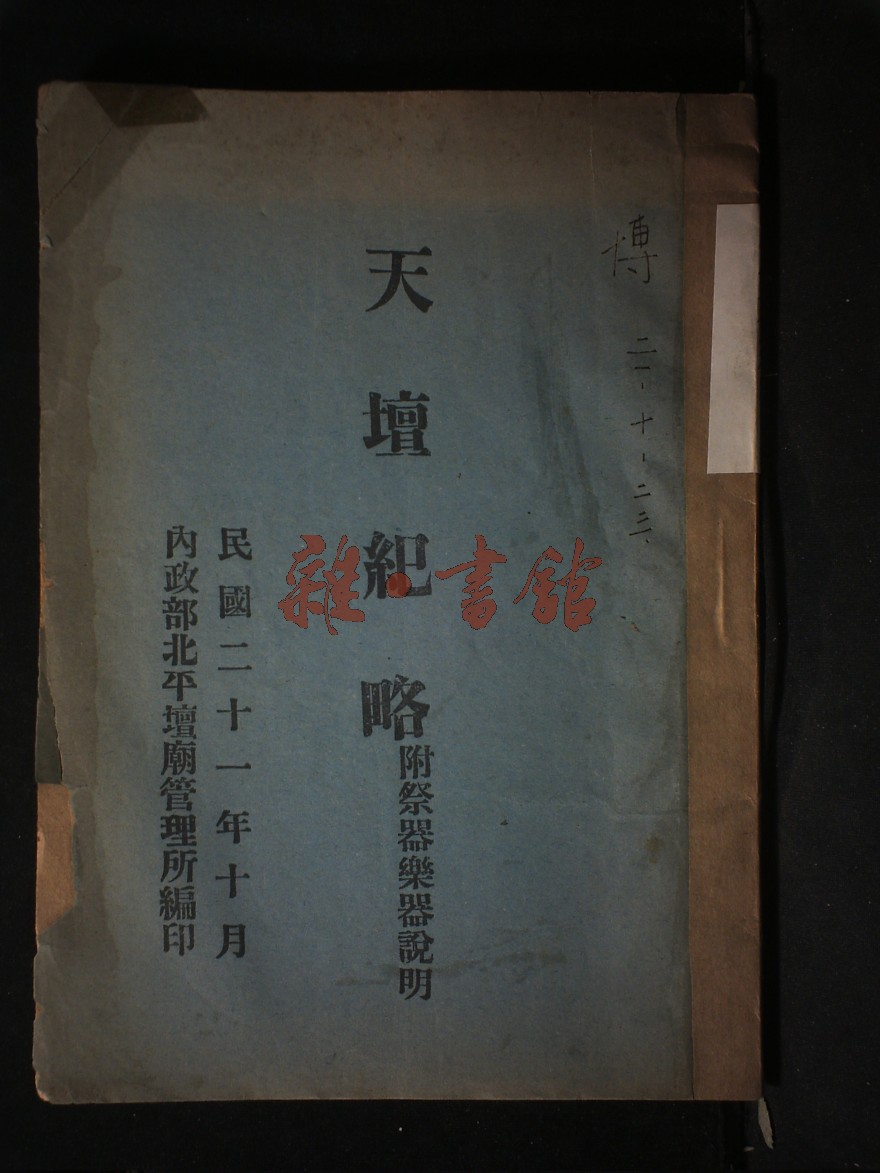 博
二一、十、二三、
天壇紀略
附祭器樂器說明
民國二十一年十月
內政部北平壇廟管理所編印
雜·書館